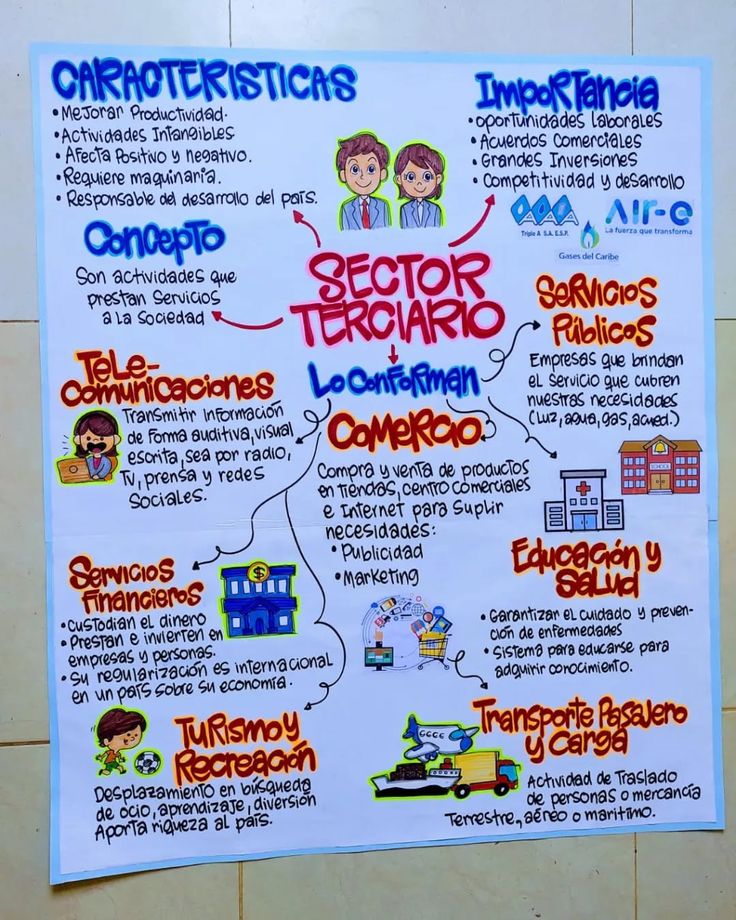 CARACTERISTICAS
• Mejorar Productividad.
• Actividades Intangibles
• Afecta Positivo y negativo.
• Requiere maquinaria.
• Responsable del desarrollo del país.
Importancia
• oportunidades laborales
• Acuerdos Comerciales
• Grandes Inversiones
• Competitividad y desarrollo
Triple A S.A. E.S.P.
AIR-E
La fuerza que transforma
Gases del Caribe
Concepto
Son actividades que
prestan Servicios
a La Sociedad
SECTOR
TERCIARIO
Lo Conforman
Servicios
Públicos
Empresas que brindan
el Servicio que cubren
nuestras necesidades
(Luz, agua, gas, acued.)
Tele-
comunicaciones
Transmitir Información
de Forma auditiva, visual
escrita, sea por radio,
Tv, prensa y redes
Sociales.
Comercio
Compra y venta de productos
en tiendas, centro comerciales
e Internet para Suplir
necesidades:
• Publicidad
• Marketing
SCHOOL
Educación y
Salud
• Garantizar el cuidado y preven-
ción de enfermedades
• Sistema para educarse para
adquirir conocimiento.
Servicios
Financieros
• Custodian el dinero
• Prestan e invierten en
empresas y personas.
• Su regularización es internacional
en un país sobre su economía.
$
Turismo y
Recreación
Desplazamiento en búsqueda
de ocio, aprendizaje, diversión
Aporta riqueza al país.
Transporte Pasajero
y Carga
Actividad de Traslado
de personas o mercancía
Terrestre, aéreo o maritimo.